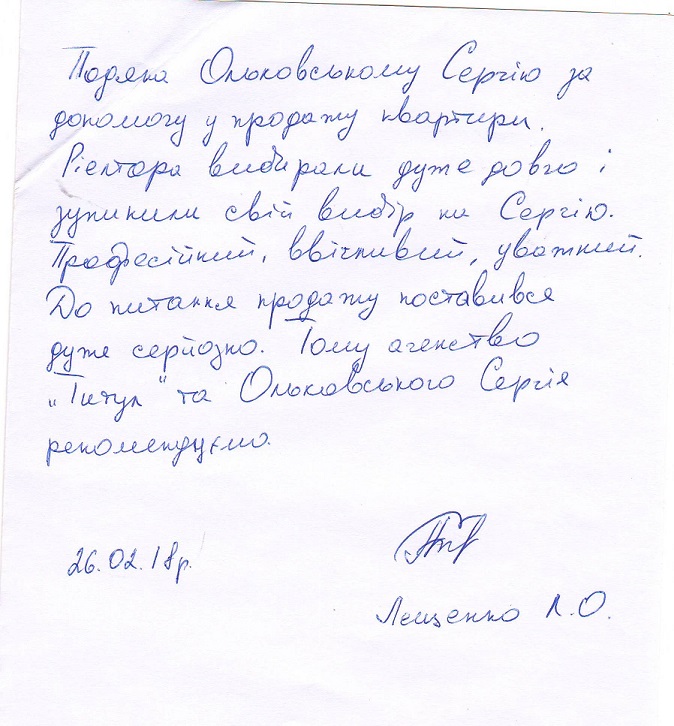 Подяка Ольховському Сергію за
допомогу у продажу квартири.
Рієлтора вибирали дуже довго і
зупинили свій вибір на Сергію.
Професійний, ввічливий, уважний.
До питання продажу поставився
дуже серйозно. Тому агенство
„Титул" та Ольховського Сергія
рекомендуємо.
26.02.18р.
Лещенко Л.О.